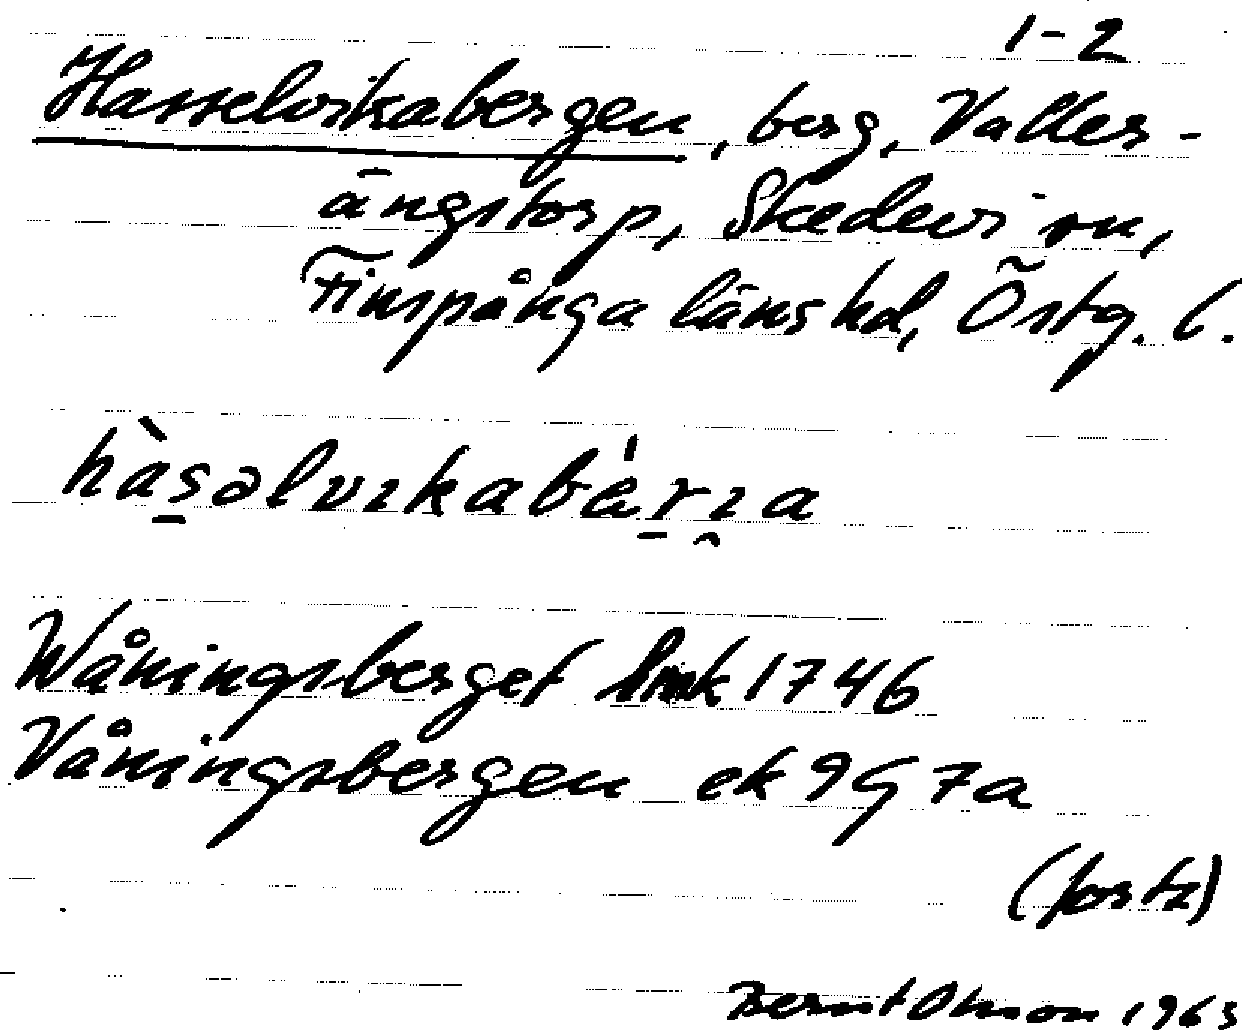 1-2
Hasselvikabergen, berg, Valler-
ängstorp, Skedevi sn,
Finspånga läns hd, Östg. l.
hàs̱əlvɪkabáṟɪ̯a
Wåningsberget lmk 1746
Våningsbergen ek 9G7a
(forts)
Bernt Olsson 1963